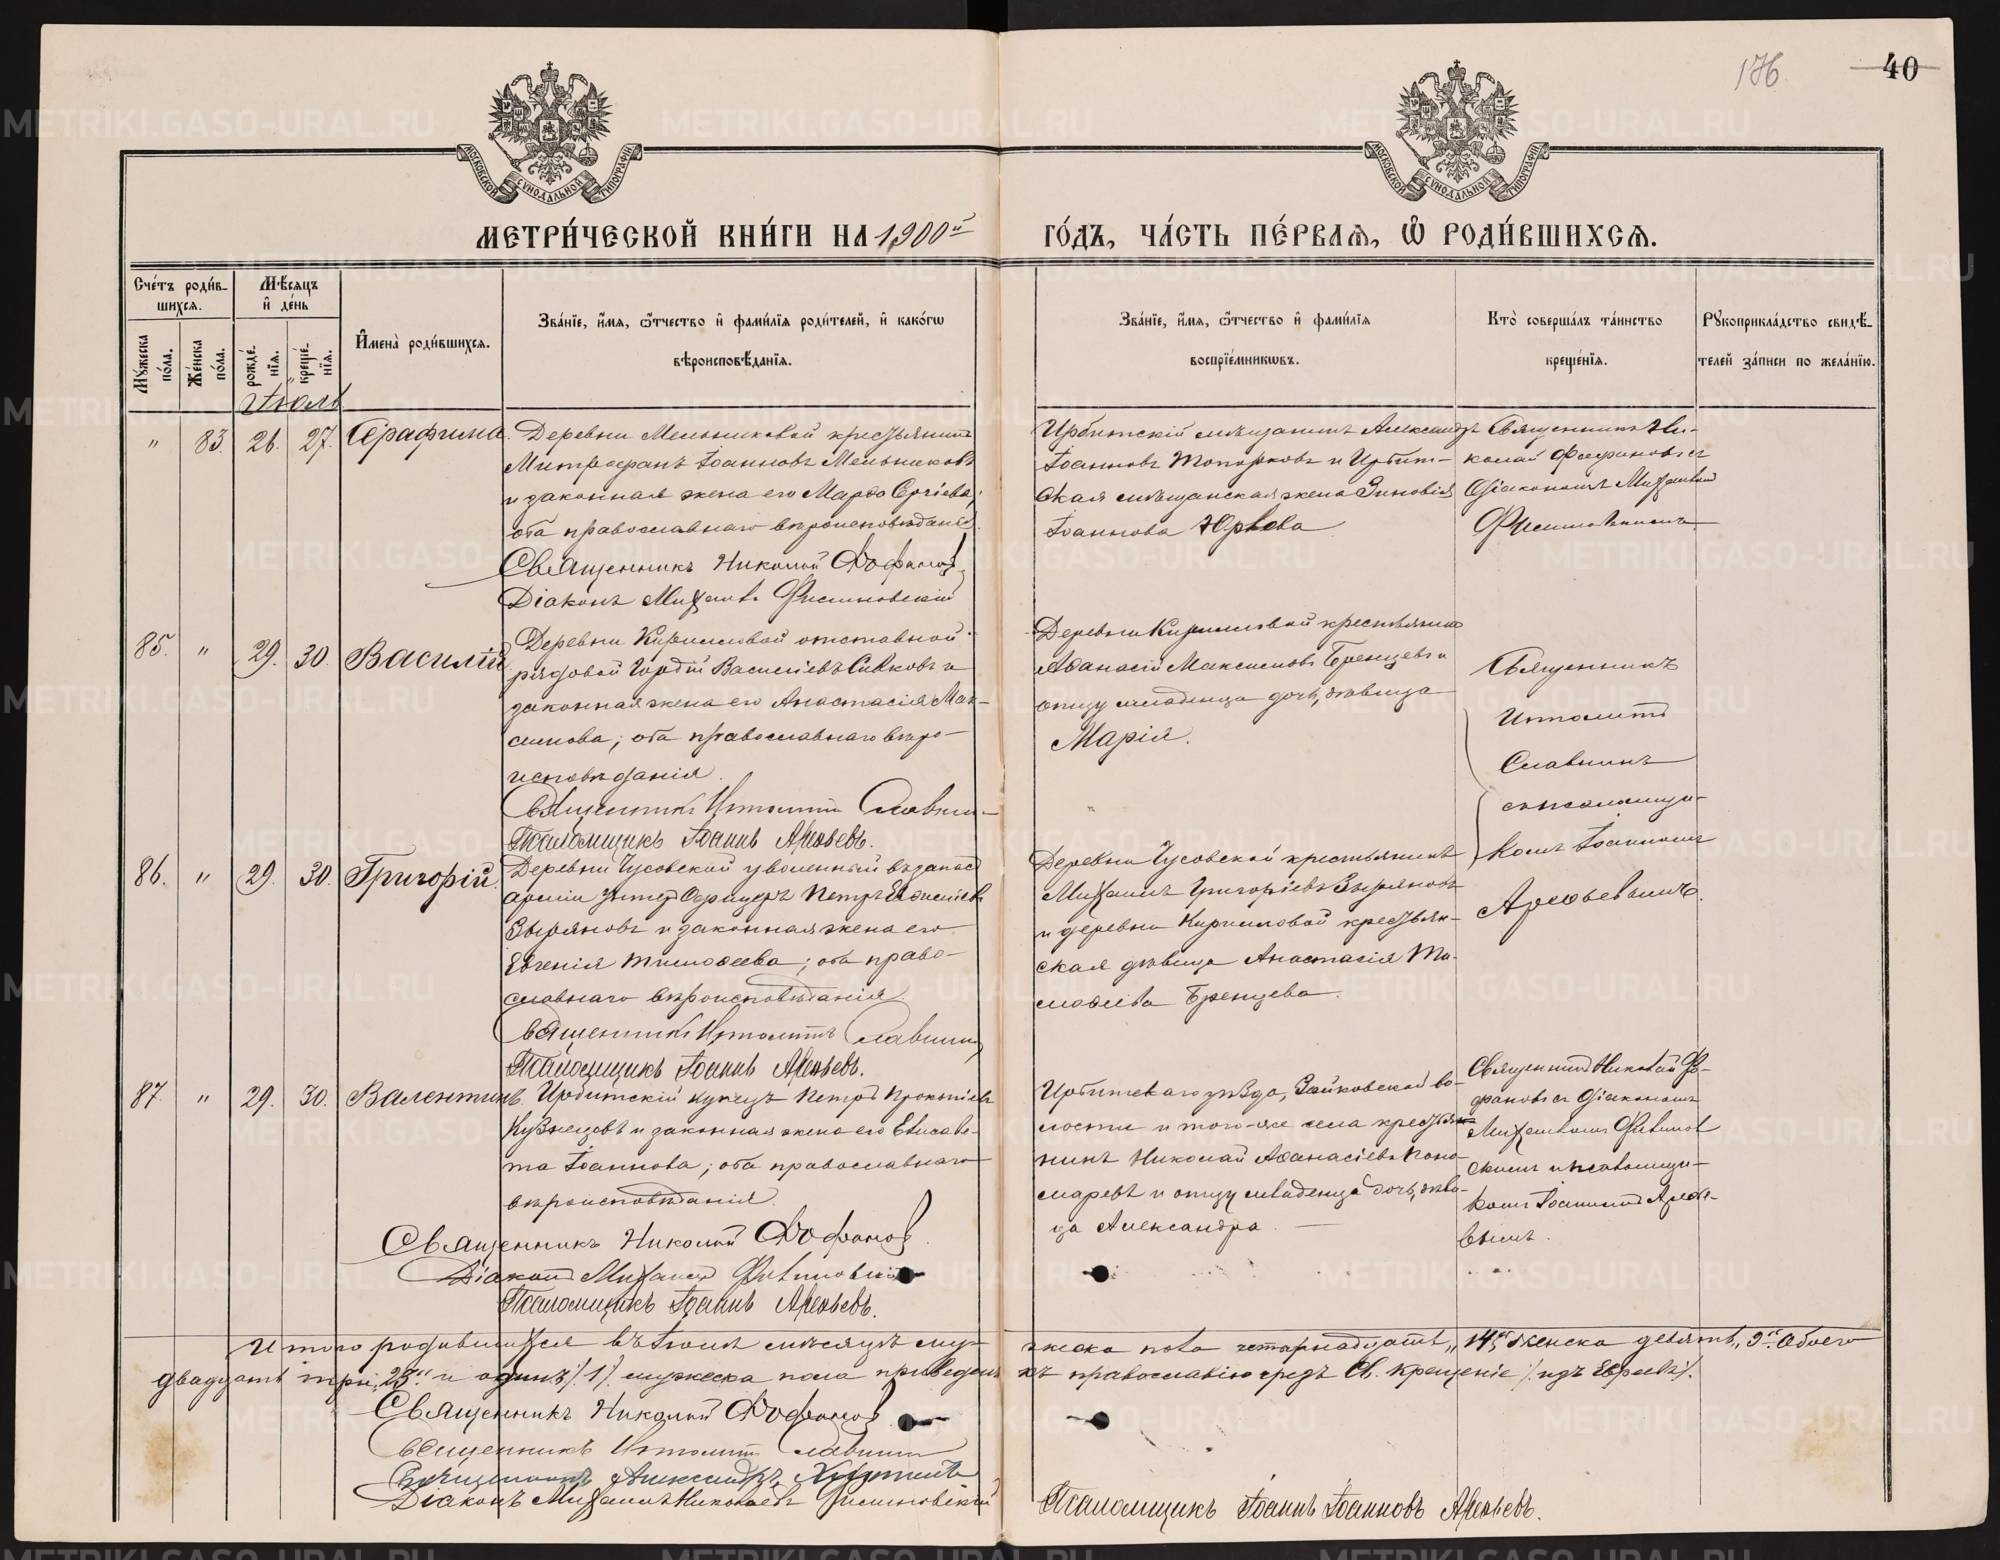 176
40
МОСКОВСКОЙ СѴНОДАЛЬНОЙ ТИПОГРАФІИ
МОСКОВСКОЙ СѴНОДАЛЬНОЙ ТИПОГРАФІИ
МЕТРИ́ЧЕСКОЙ КНИ́ГИ НА 1900й ГО́ДЪ, ЧА́СТЬ ПЕ́РВАѦ, Ѽ РОДИ́ВШИХСѦ.
Сче́тъ роди́в-
шихсѧ.
Мѣ́сѧцъ
и҆ де́нь
Мꙋ́жеска по́ла.
Же́нска по́ла.
рожде́нїѧ.
креще́нїѧ.
И҆мена̀ роди́вшихсѧ.
Зва́нїе, и҆́мѧ, ѻ҆́тчество и҆ фами́лїѧ роди́телей, и҆ како́гѡ
вѣроисповѣ́данїѧ.
Зва́нїе, и҆́мѧ, ѻ҆́тчество и҆ фами́лїѧ
воспрїе́мникѡвъ.
Кто̀ соверша́лъ та́инство
креще́нїѧ.
Рꙋкоприкла́дство свидѣ́-
телей за́писи по жела́нїю.
Іюль
" 83. 26. 27. Серафима.
Деревни Мельниковой крестьянинъ
Митрофанъ Іоанновъ Мельниковъ
и законная жена его Марѳа Сергіева;
оба православнаго вѣроисповѣданія.
Священникъ Николай Фофановъ
Діаконъ Михаилъ Фисиновскій
Ирбитскій мѣщанинъ Александръ
Іоанновъ Топорковъ и Ирбит-
ская мѣщанская жена Зиновія
Іоаннова Юрьева
Священникъ Ни-
колай Фофановъ съ
Діакономъ Михаиломъ
85. " 29. 30. Василій
Деревни Кирилловой отставной
рядовой Гордій Василіевъ Сивковъ и
законная жена его Анастасія Мак-
симова; оба православнаго вѣро-
исповѣданія.
Священникъ Ипполитъ Славнинъ
Псаломщикъ Іоаннъ Арефьевъ.
Деревни Кирилловой крестьянинъ
Аѳанасій Максимовъ Бренцевъ и
отцу младенца дочь, дѣвица
Марія.
Священникъ
Ипполитъ
Славнинъ
съ псаломщи-
комъ Іоанномъ
Арефьевымъ.
86. " 29. 30. Григорій.
Деревни Чусовской уволенный въ запасъ
арміи унтеръ Офицеръ Петръ
Зыряновъ и законная жена его
Евгенія Тимоѳеева; оба право-
славнаго вѣроисповѣданія.
Священникъ Ипполитъ Славнинъ
Псаломщикъ Іоаннъ Арефьевъ.
Деревни Чусовской крестьянинъ
Михаилъ Григоріевъ Зыряновъ
и деревни Кирилловой крестьян-
ская дѣвица Анастасія Ти-
моѳеева Бренцева.
87. " 29. 30. Валентинъ
Ирбитскій купецъ Петръ Прокопіевъ
Кузнецовъ и законная жена его Елисаве-
та Іоаннова; оба православнаго
вѣроисповѣданія.
Священникъ Николай Фофановъ.
Діаконъ Михаилъ Фисиновскій
Псаломщикъ Іоаннъ Арефьевъ.
Ирбитскаго уѣзда, Зайковской во-
лости и того-же села крестья-
нинъ Николай Аѳанасіевъ Поно-
маревъ и отцу младенца дочь, дѣви-
ца Александра.
Священникъ Николай Фо-
фановъ съ Діакономъ
Михаиломъ Фисинов-
скимъ и псаломщи-
комъ Іоанномъ Арефь-
вымъ.
Итого родившихся въ Іюлѣ мѣсяцѣ му- жеска пола четырнадцать "14", женска девять "9". Обоего
двадцать три "23" и одинъ /1/ мужеска пола приведенъ къ православію чрезъ Св. Крещеніе /изъ Евреевъ/.
Священникъ Николай Фофановъ
Священникъ Ипполитъ Славнинъ
Священникъ Александръ
Діаконъ Михаилъ Николаевъ Фисиновскій
Псаломщикъ Іоаннъ Іоанновъ Арефьевъ.
METRIKI.GASO-URAL.RU